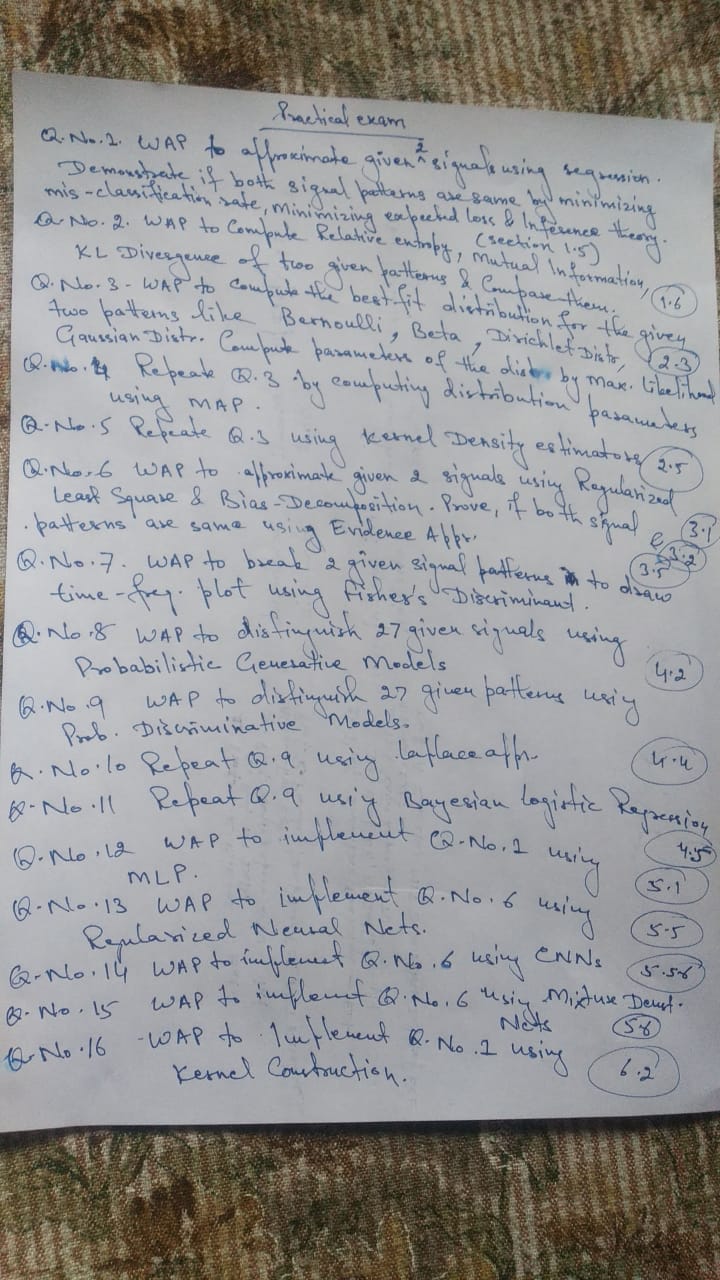 Practical exam
Q.No.1. WAP to approximate given 2 signals using regression.
Demonstrate if both signal patterns are same by minimizing
mis-classification rate, minimizing expected loss & Inference theory.
(section 1.5)
Q.No.2. WAP to Compute Relative entropy, Mutual Information,
KL Divergence of two given patterns & Compare them. 1.6
Q.No.3- WAP to compute the best-fit distribution for the given
two patterns like Bernoulli, Beta, Dirichlet Distr, 2.3
Gaussian Distr. Compute parameters of the dist by max. likelihood
Q.No.4 Repeat Q.3 by computing distribution parameters
using MAP.
Q.No.5 Repeate Q.3 using Kernel Density estimators 2.5
Q.No.6 WAP to approximate given 2 signals using Regularized
Least Square & Bias-Decomposition. Prove, if both signal 3.1
patterns are same using Evidence Appr. 3.2
3.5
Q.No.7. WAP to break 2 given signal patterns to draw
time-freq. plot using Fisher's Discriminant.
Q.No.8 WAP to distinguish 27 given signals using
Probabilistic Generative Models 4.2
Q.No.9 WAP to distinguish 27 given patterns using
Prob. Discriminative Models.
Q.No.10 Repeat Q.9 using laplace appr. 4.4
Q.No.11 Repeat Q.9 using Bayesian logistic Regression
4.5
Q.No.12 WAP to implement Q.No.1 using
MLP. 5.1
Q.No.13 WAP to implement Q.No.6 using
Regularized Neural Nets. 5.5
Q.No.14 WAP to implement Q.No.6 using CNNs 5.5.6
Q.No.15 WAP to implemt Q.No.6 using Mixture Denst.
Nets 5.6
Q.No.16 WAP to Implement Q.No.1 using
Kernel Construction. 6.2